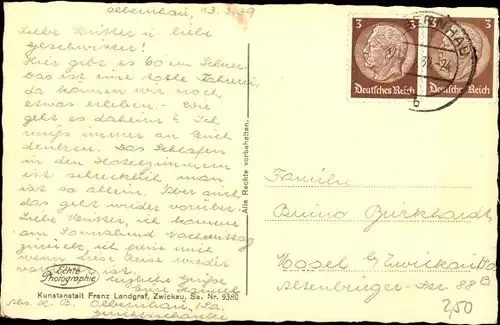 Olbernhau, 13.3.39
Liebe Mutter u. liebe
Geschwister!
Hier gibt es 60 cm Schnee.
Das ist eine tolle Fahrerei,
da können wir noch
etwas erleben. Wie
geht es daheim? Ich
muß immer an Euch
denken. Das Schlafen
in den Hotelzimmern
ist schrecklich man
ist so allein. Aber auch
das geht wieder vorüber.
Liebe Mutter, ich komme
am Sonnabend Nachmittag
zurück, ich freue mich
wenn diese Reise wieder
vorüber ist.
Herzliche Grüße
Echte
Photographie
Kunstanstalt Franz Landgraf, Zwickau, Sa. Nr. 9380
Abs. H. B. Olbernhau i/Sa.
Alle Rechte vorbehalten.
3 3
Deutsches Reich Deutsches Reich
Familie
Bruno Burkhardt
Mosel b/Zwickau/Sa
Altenburger-Str 88 B
2,50